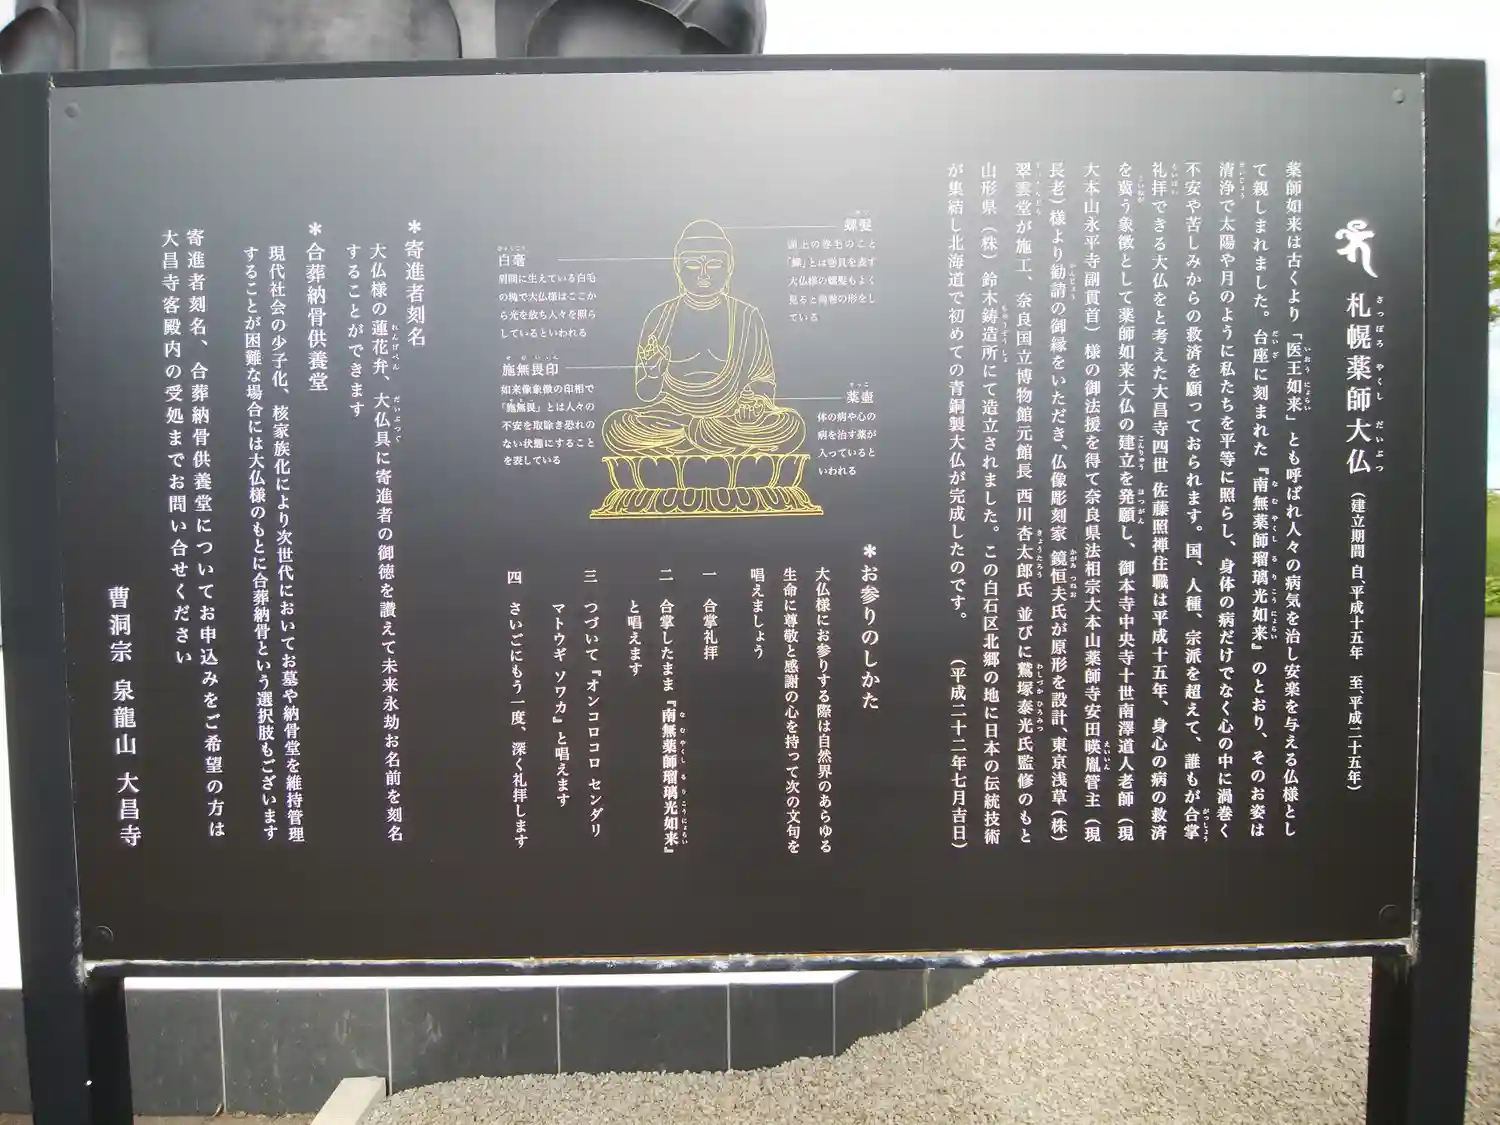 札幌薬師大仏 (建立期間 自、平成十五年 至、平成二十五年)
さっぽろ やくし だいぶつ
薬師如来は古くより「医王如来」とも呼ばれ人々の病気を治し安楽を与える仏様とし
いおう にょらい
て親しまれました。台座に刻まれた『南無薬師瑠璃光如来』のとおり、そのお姿は
だいざ なむやくしるりこうにょらい
清浄で太陽や月のように私たちを平等に照らし、身体の病だけでなく心の中に渦巻く
せいじょう
不安や苦しみからの救済を願っておられます。国、人種、宗派を超えて、誰もが合掌
がっしょう
礼拝できる大仏をと考えた大昌寺四世 佐藤照禅住職は平成十五年、身心の病の救済
らいはい
を冀う象徴として薬師如来大仏の建立を発願し、御本寺中央寺十世南澤道人老師(現
こいねが こんりゅう ほつがん
大本山永平寺副貫首)様の御法援を得て奈良県法相宗大本山薬師寺安田暎胤管主(現
えいいん
長老)様より勧請の御縁をいただき、仏像彫刻家 鏡恒夫氏が原形を設計、東京浅草(株)
かんじょう かがみ つねお
翠雲堂が施工、奈良国立博物館元館長 西川杏太郎氏 並びに鷲塚泰光氏監修のもと
すいうんどう きょうたろう わしづか ひろみつ
山形県(株)鈴木鋳造所にて造立されました。この白石区北郷の地に日本の伝統技術
ちゅうぞうしょ
が集結し北海道で初めての青銅製大仏が完成したのです。 (平成二十二年七月吉日)
螺髪
頭上の巻毛のこと
「螺」とは巻貝を表す
大仏様の螺髪もよく
見ると渦巻の形をし
ている
薬壷
やっこ
体の病や心の
病を治す薬が
入っていると
いわれる
白毫
びゃくごう
眉間に生えている白毛
の塊で大仏様はここか
ら光を放ち人々を照ら
しているといわれる
施無畏印
せむいいん
如来像象徴の印相で
「施無畏」とは人々の
不安を取除き恐れの
ない状態にすること
を表している
＊お参りのしかた
大仏様にお参りする際は自然界のあらゆる
生命に尊敬と感謝の心を持って次の文句を
唱えましょう
一 合掌礼拝
二 合掌したまま『南無薬師瑠璃光如来』
なむやくしるりこうにょらい
と唱えます
三 つづいて『オンコロコロ センダリ
マトウギ ソワカ』と唱えます
四 さいごにもう一度、深く礼拝します
＊寄進者刻名
大仏様の蓮花弁、大仏具に寄進者の御徳を讃えて未来永劫お名前を刻名
れんげべん だいぶつぐ
することができます
＊合葬納骨供養堂
現代社会の少子化、核家族化により次世代においてお墓や納骨堂を維持管理
することが困難な場合には大仏様のもとに合葬納骨という選択肢もございます
寄進者刻名、合葬納骨供養堂についてお申込みをご希望の方は
大昌寺客殿内の受処までお問い合せください
曹洞宗 泉龍山 大昌寺